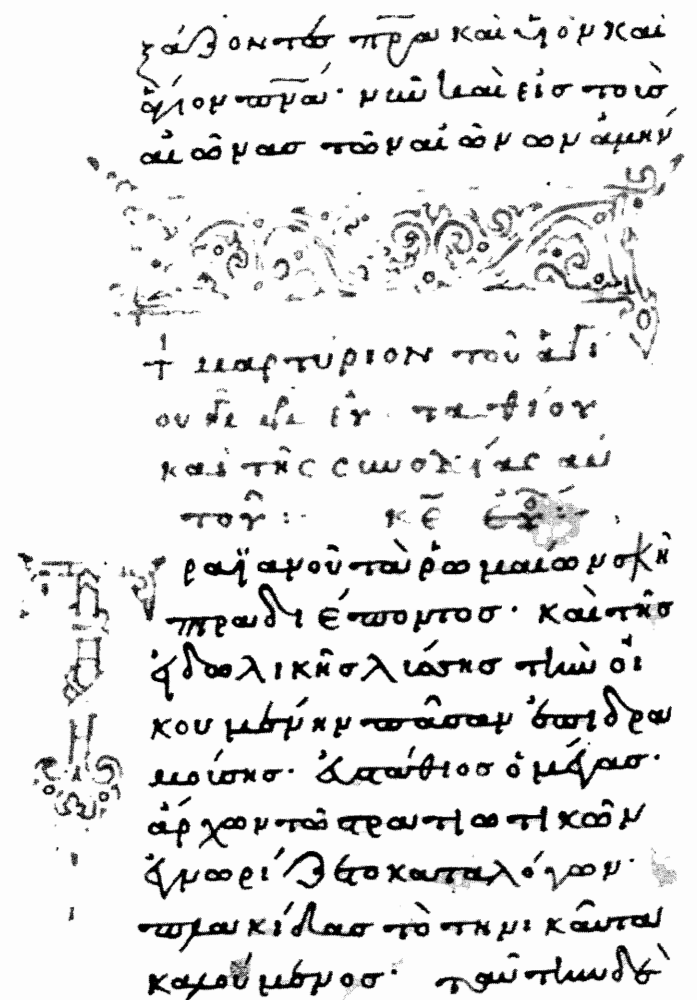 ξάζοντασ πρα καὶ υἱὸν καὶ
ἅγιον πνα· νῦν καὶ εἰσ τοὺσ
αἰῶνασ τῶν αἰώνων ἀμήν
+ μαρτύριον τοῦ ἁγί
ου εὐσταθίου
καὶ τῆς συνοδίας αὐ
τοῦ :· κε
Τραϊανοῦ τὰ ῥωμαίων σκῆ
πτρα διέποντοσ· καὶ τῆσ
εἰδωλικῆσ λύσσησ τὴν οἰ
κουμένην πᾶσαν ἐπιδρα
μούσησ· εὐστάθιοσ ὁ μέγασ·
ἄρχων τῶ στρατιωτικῶν
ἐγνωρίζετο καταλόγων·
πλακίδασ τὸ τηνικαῦτα
καλούμενοσ· ταύτην δὲ